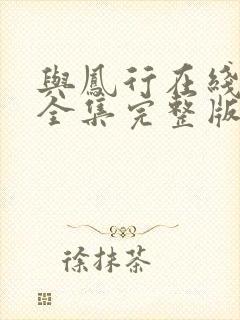 與鳳行在綫
全集完整版
徐抹茶